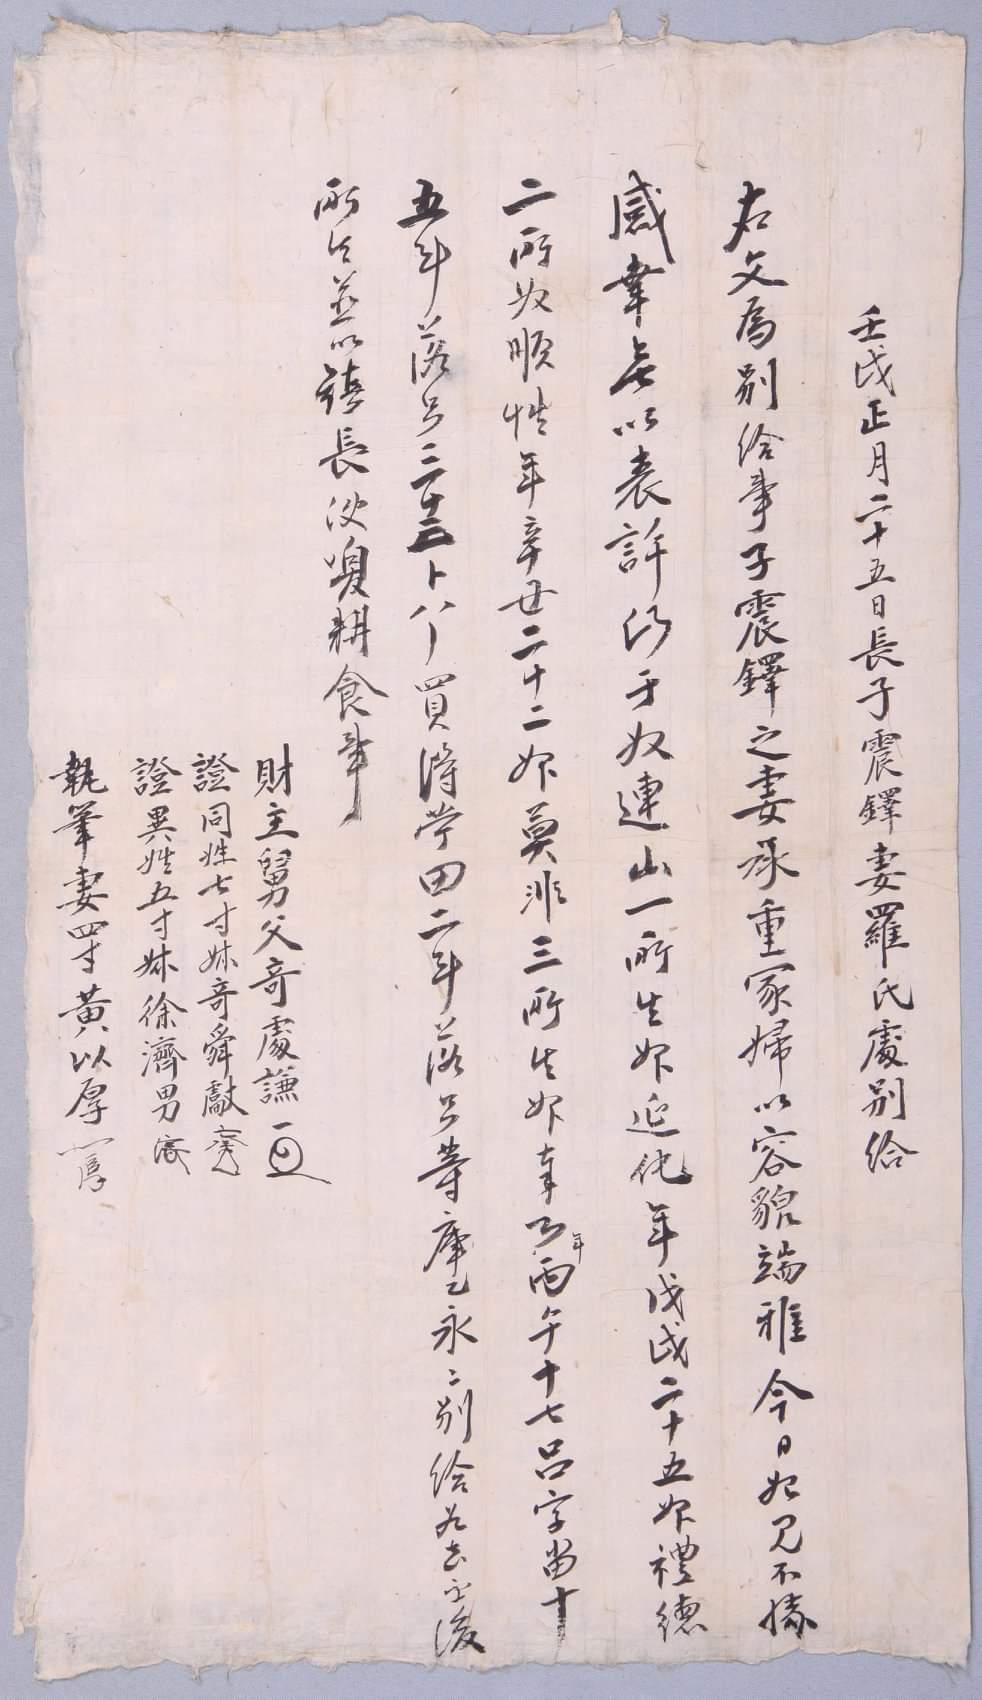 壬戌正月二十五日長子震鐸妻羅氏處別給
右文爲別給事子震鐸之妻承重冢婦以容貌端雅今日始見不勝
感幸無以表許仍于奴連山一所生婢延化年戊戌二十五婢禮德
二所奴順性年辛丑二十二婢莫非三所生婢奉 年丙午十七呂字畓十
五斗落只二十三卜八 買得 田二斗落只等庫乙永〻別給爲去乎後
所生並以鎮長使喚耕食事
財主舅父奇處謙
證同姓七寸姪奇舜獻
證異姓五寸姪徐濟男
執筆妻四寸黃以厚